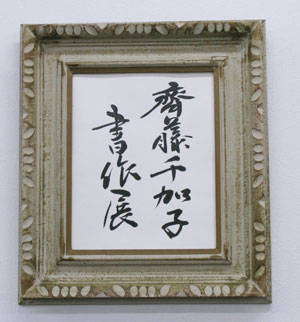 齋藤千加子
書作展